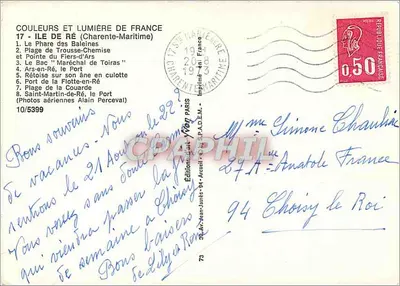 COULEURS ET LUMIÈRE DE FRANCE
17 - ILE DE RÉ (Charente-Maritime)
1. Le Phare des Baleines
2. Plage de Trousse-Chemise
et Pointe du Fiers-d'Ars
3. Le Bac "Maréchal de Toiras"
4. Ars-en-Ré, le Port
5. Rétoise sur son âne en culotte
6. Port de la Flotte-en-Ré
7. Plage de la Couarde
8. Saint-Martin-de-Ré, le Port
(Photos aériennes Alain Perceval)
10/5399
Bons souvenirs
de vacances. Nous
rentrons le 21 Août ou le 22.
Vous voyez sans doute
qui viendra passer la
de semaine à Choisy
Bons baisers
de Lily &
Editions Yvon PARIS
Imprimé en France
CHARENTE MARITIME
RÉPUBLIQUE FRANÇAISE
0,50
CPAPHIL
Mme Simone
27 A - Anatole France
94 Choisy le Roi